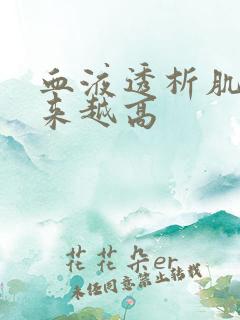 血液透析肌
来越高
花花朵er
未经同意禁止转载